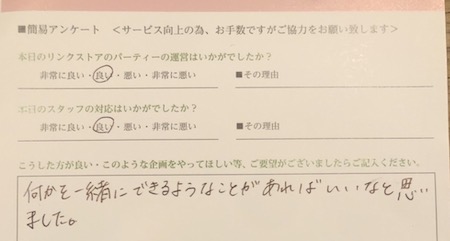 ■簡易アンケート ＜サービス向上の為、お手数ですがご協力をお願い致します＞
本日のリンクストアのパーティーの運営はいかがでしたか？
非常に良い・良い・悪い・非常に悪い ■その理由
本日のスタッフの対応はいかがでしたか？
非常に良い・良い・悪い・非常に悪い ■その理由
こうした方が良い・このような企画をやってほしい等、ご要望がございましたらご記入ください。
何かを一緒にできるようなことがあればいいなと思い
ました。